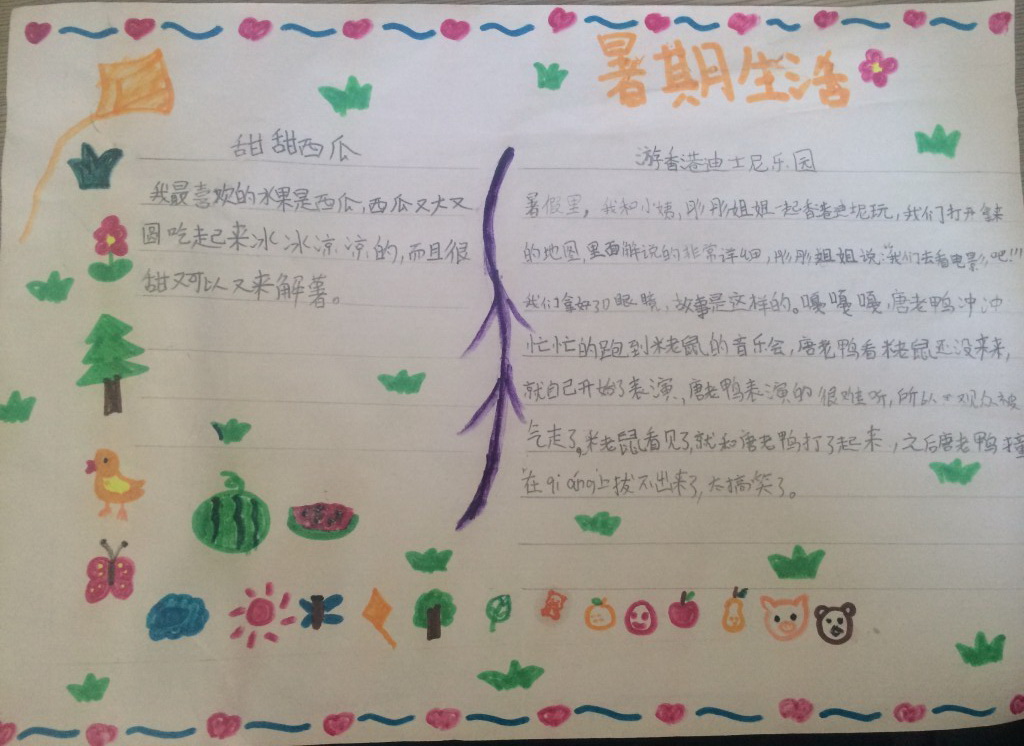 暑期生活
甜甜西瓜
我最喜欢的水果是西瓜,西瓜又大又
圆吃起来冰冰凉凉的,而且很
甜又可以又来解薯。
游香港迪士尼乐园
暑假里,我和小婧,彤彤姐姐一起香港迪尼玩,我们打开
的地图,里面解说的非常详细,彤彤姐姐说:“我们去看电影吧!!!
我们拿好3D眼睛,故事是这样的。嘎嘎嘎,唐老鸭冲冲
忙忙的跑到米老鼠的音乐会,唐老鸭看米老鼠还没来,
就自己开始了表演,唐老鸭表演的很难听,所以观众被
气走了,米老鼠看见了就和唐老鸭打了起来,之后唐老鸭撞
在qiáng上拔不出来了,太搞笑了。